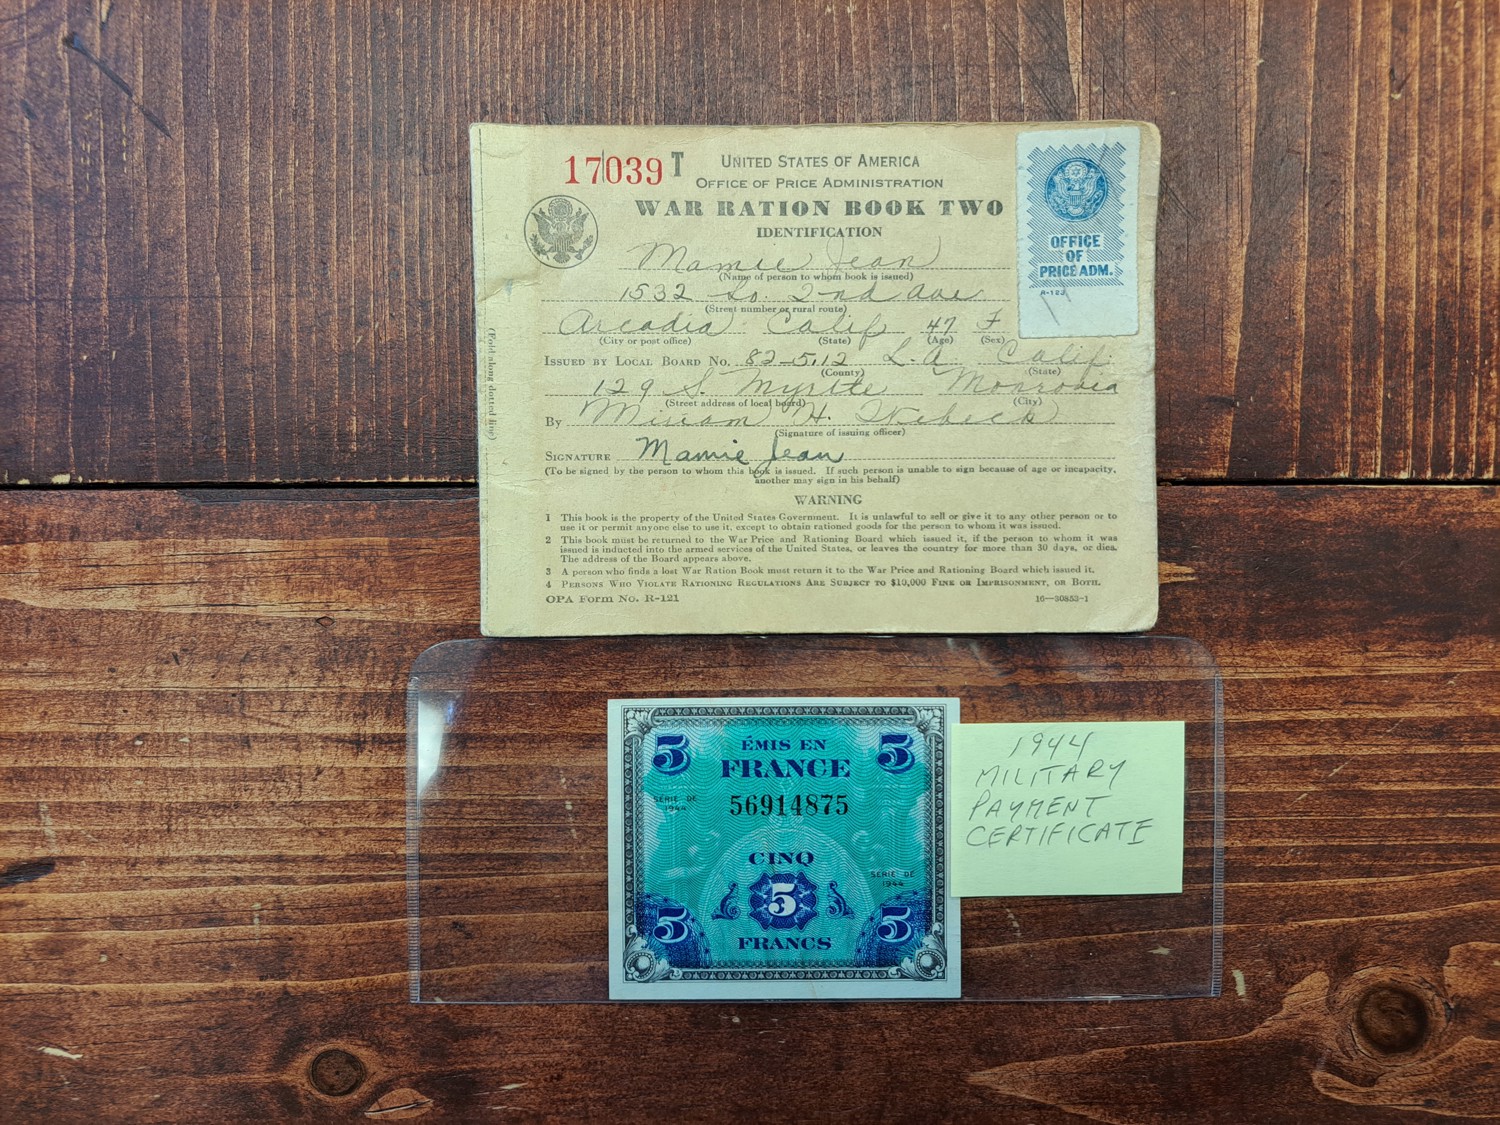 17039 T
UNITED STATES OF AMERICA
OFFICE OF PRICE ADMINISTRATION
WAR RATION BOOK TWO
IDENTIFICATION
OFFICE
OF
PRICE ADM.
R-123
Mamie Jean
(Name of person to whom book is issued)
1532 So. 2nd Ave
(Street number or rural route)
Arcadia Calif 47 F
(City or post office) (State) (Age) (Sex)
ISSUED BY LOCAL BOARD NO. 82-5.12 L.A. Calif.
(County) (State)
129 S. Myrtle Monrovia
(Street address of local board) (City)
By Miriam H.
(Signature of issuing officer)
SIGNATURE Mamie Jean
(To be signed by the person to whom this book is issued. If such person is unable to sign because of age or incapacity,
another may sign in his behalf)
WARNING
1 This book is the property of the United States Government. It is unlawful to sell or give it to any other person or to
use it or permit anyone else to use it, except to obtain rationed goods for the person to whom it was issued.
2 This book must be returned to the War Price and Rationing Board which issued it, if the person to whom it was
issued is inducted into the armed services of the United States, or leaves the country for more than 30 days, or dies.
The address of the Board appears above.
3 A person who finds a lost War Ration Book must return it to the War Price and Rationing Board which issued it.
4 PERSONS WHO VIOLATE RATIONING REGULATIONS ARE SUBJECT TO $10,000 FINE OR IMPRISONMENT, OR BOTH.
OPA Form No. R-121 16—30853-1
(Fold along dotted line)
5 ÉMIS EN 5
FRANCE
SÉRIE DE
1944
56914875
CINQ
SÉRIE DE
1944
5
5 5
FRANCS
1944
MILITARY
PAYMENT
CERTIFICATE